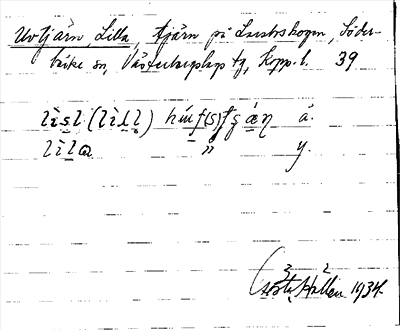 Uvtjärn, Lilla, tjärn på Lustskogen, Söder-
bärke sn, Västerbergslags tg, Kopp. l. 39
lisl (lill) ä.
lila " y.
Gösta Hallén 1934.